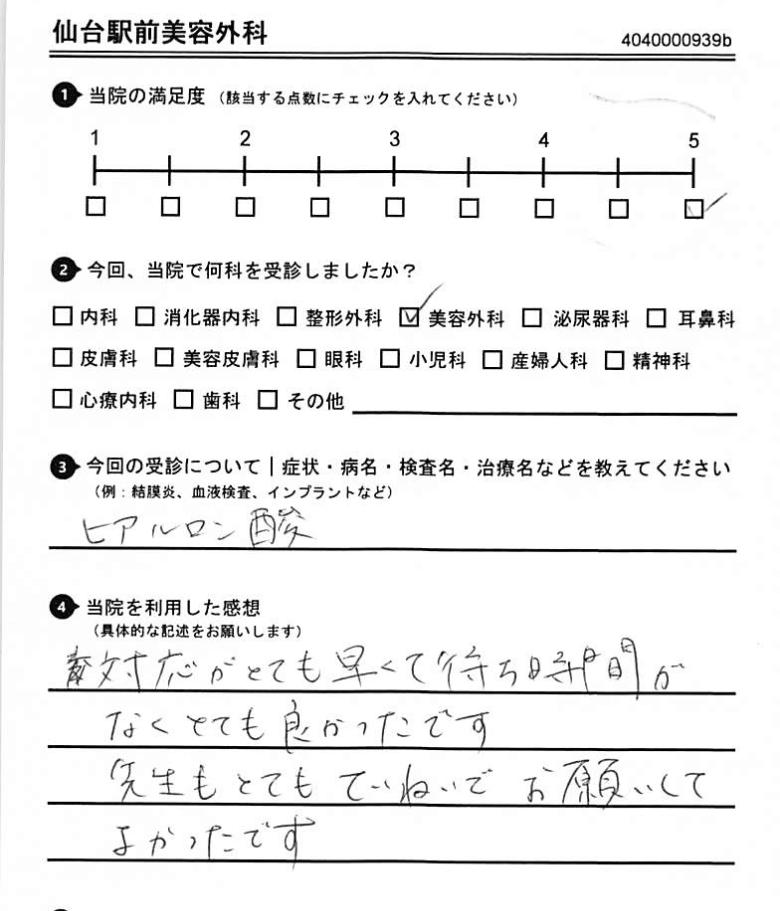 仙台駅前美容外科
4040000939b
❶ 当院の満足度 （該当する点数にチェックを入れてください）
1 2 3 4 5
□ □ □ □ □ □ □ □ ☑
❷ 今回、当院で何科を受診しましたか？
□ 内科 □ 消化器内科 □ 整形外科 ☑ 美容外科 □ 泌尿器科 □ 耳鼻科
□ 皮膚科 □ 美容皮膚科 □ 眼科 □ 小児科 □ 産婦人科 □ 精神科
□ 心療内科 □ 歯科 □ その他
❸ 今回の受診について｜症状・病名・検査名・治療名などを教えてください
（例：結膜炎、血液検査、インプラントなど）
ヒアルロン酸
❹ 当院を利用した感想
（具体的な記述をお願いします）
対応がとても早くて待ち時間が
なくとても良かったです
先生もとてもていねいでお願いして
よかったです